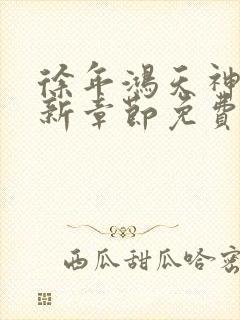 徐年鸿天神
新章节免费
西瓜甜瓜哈密